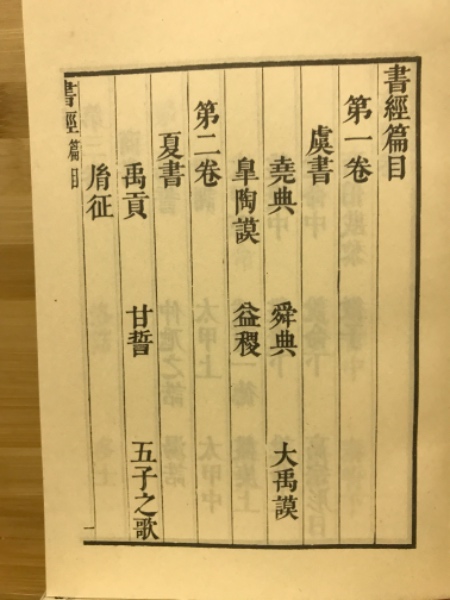 書經篇目
第一卷
虞書
堯典 舜典 大禹謨
臯陶謨 益稷
第二卷
夏書
禹貢 甘誓 五子之歌
胤征
書經篇目
一